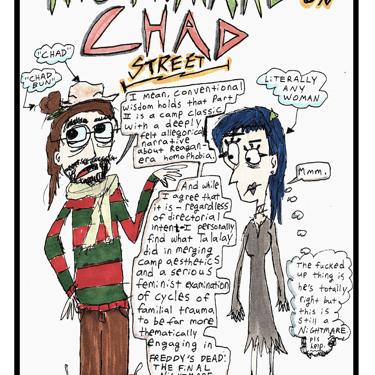 NIGHTMARE ON
CHAD
STREET
"CHAD"
"CHAD
BUN"
LITERALLY
ANY
WOMAN
I mean, conventional
wisdom holds that Part
II is a camp classic
with a deeply
felt allegorical
narrative
about Reagan-
era homophobia.
And while
I agree that
it is - regardless
of directorial
intent - I personally
find what Talalay
did in merging
camp aesthetics
and a serious
feminist examination
of cycles of
familial trauma
to be far more
thematically
engaging in
FREDDY'S DEAD:
THE FINAL
NIGHTMARE
Mmm.
The fucked
up thing is
he's totally
right but
this is
still a
NIGHTMARE
pls
help.